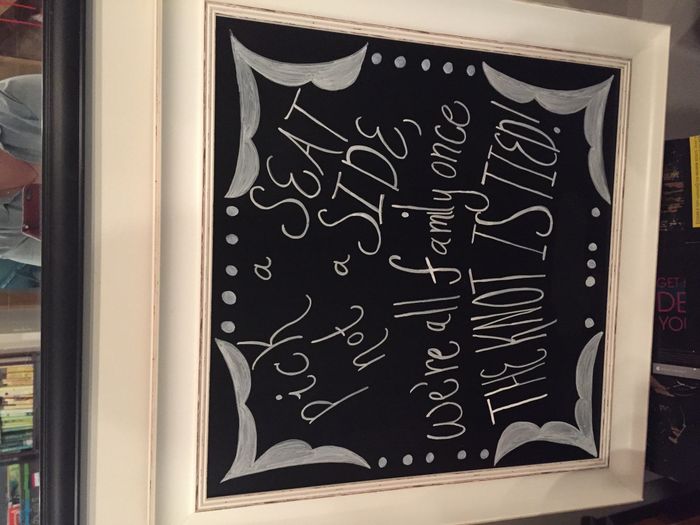 pick a SEAT
not a SIDE,
we're all family once
THE KNOT IS TIED!
GET
DE
YO